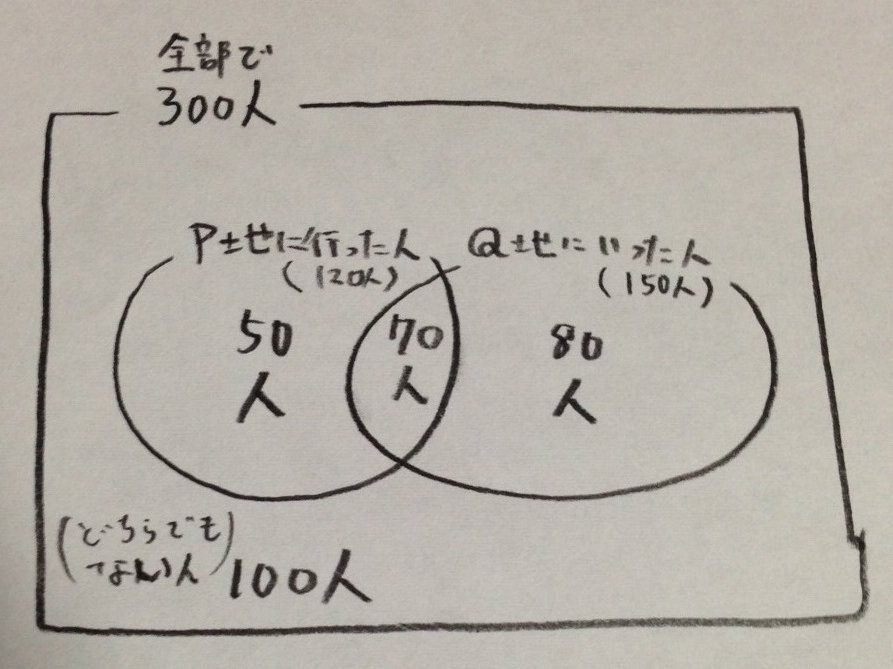 全部で
300人
P社に行った人
(120人)
Q社にいった人
(150人)
50
人
70
人
80
人
(どちらでも
ない人) 100人